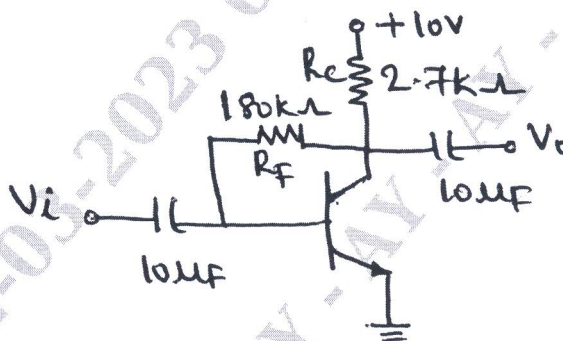 +10V
Rc 2.7kΩ
180kΩ
RF
Vo
10μF
Vi
10μF
-03-2023
AY - AY -
Y - AY